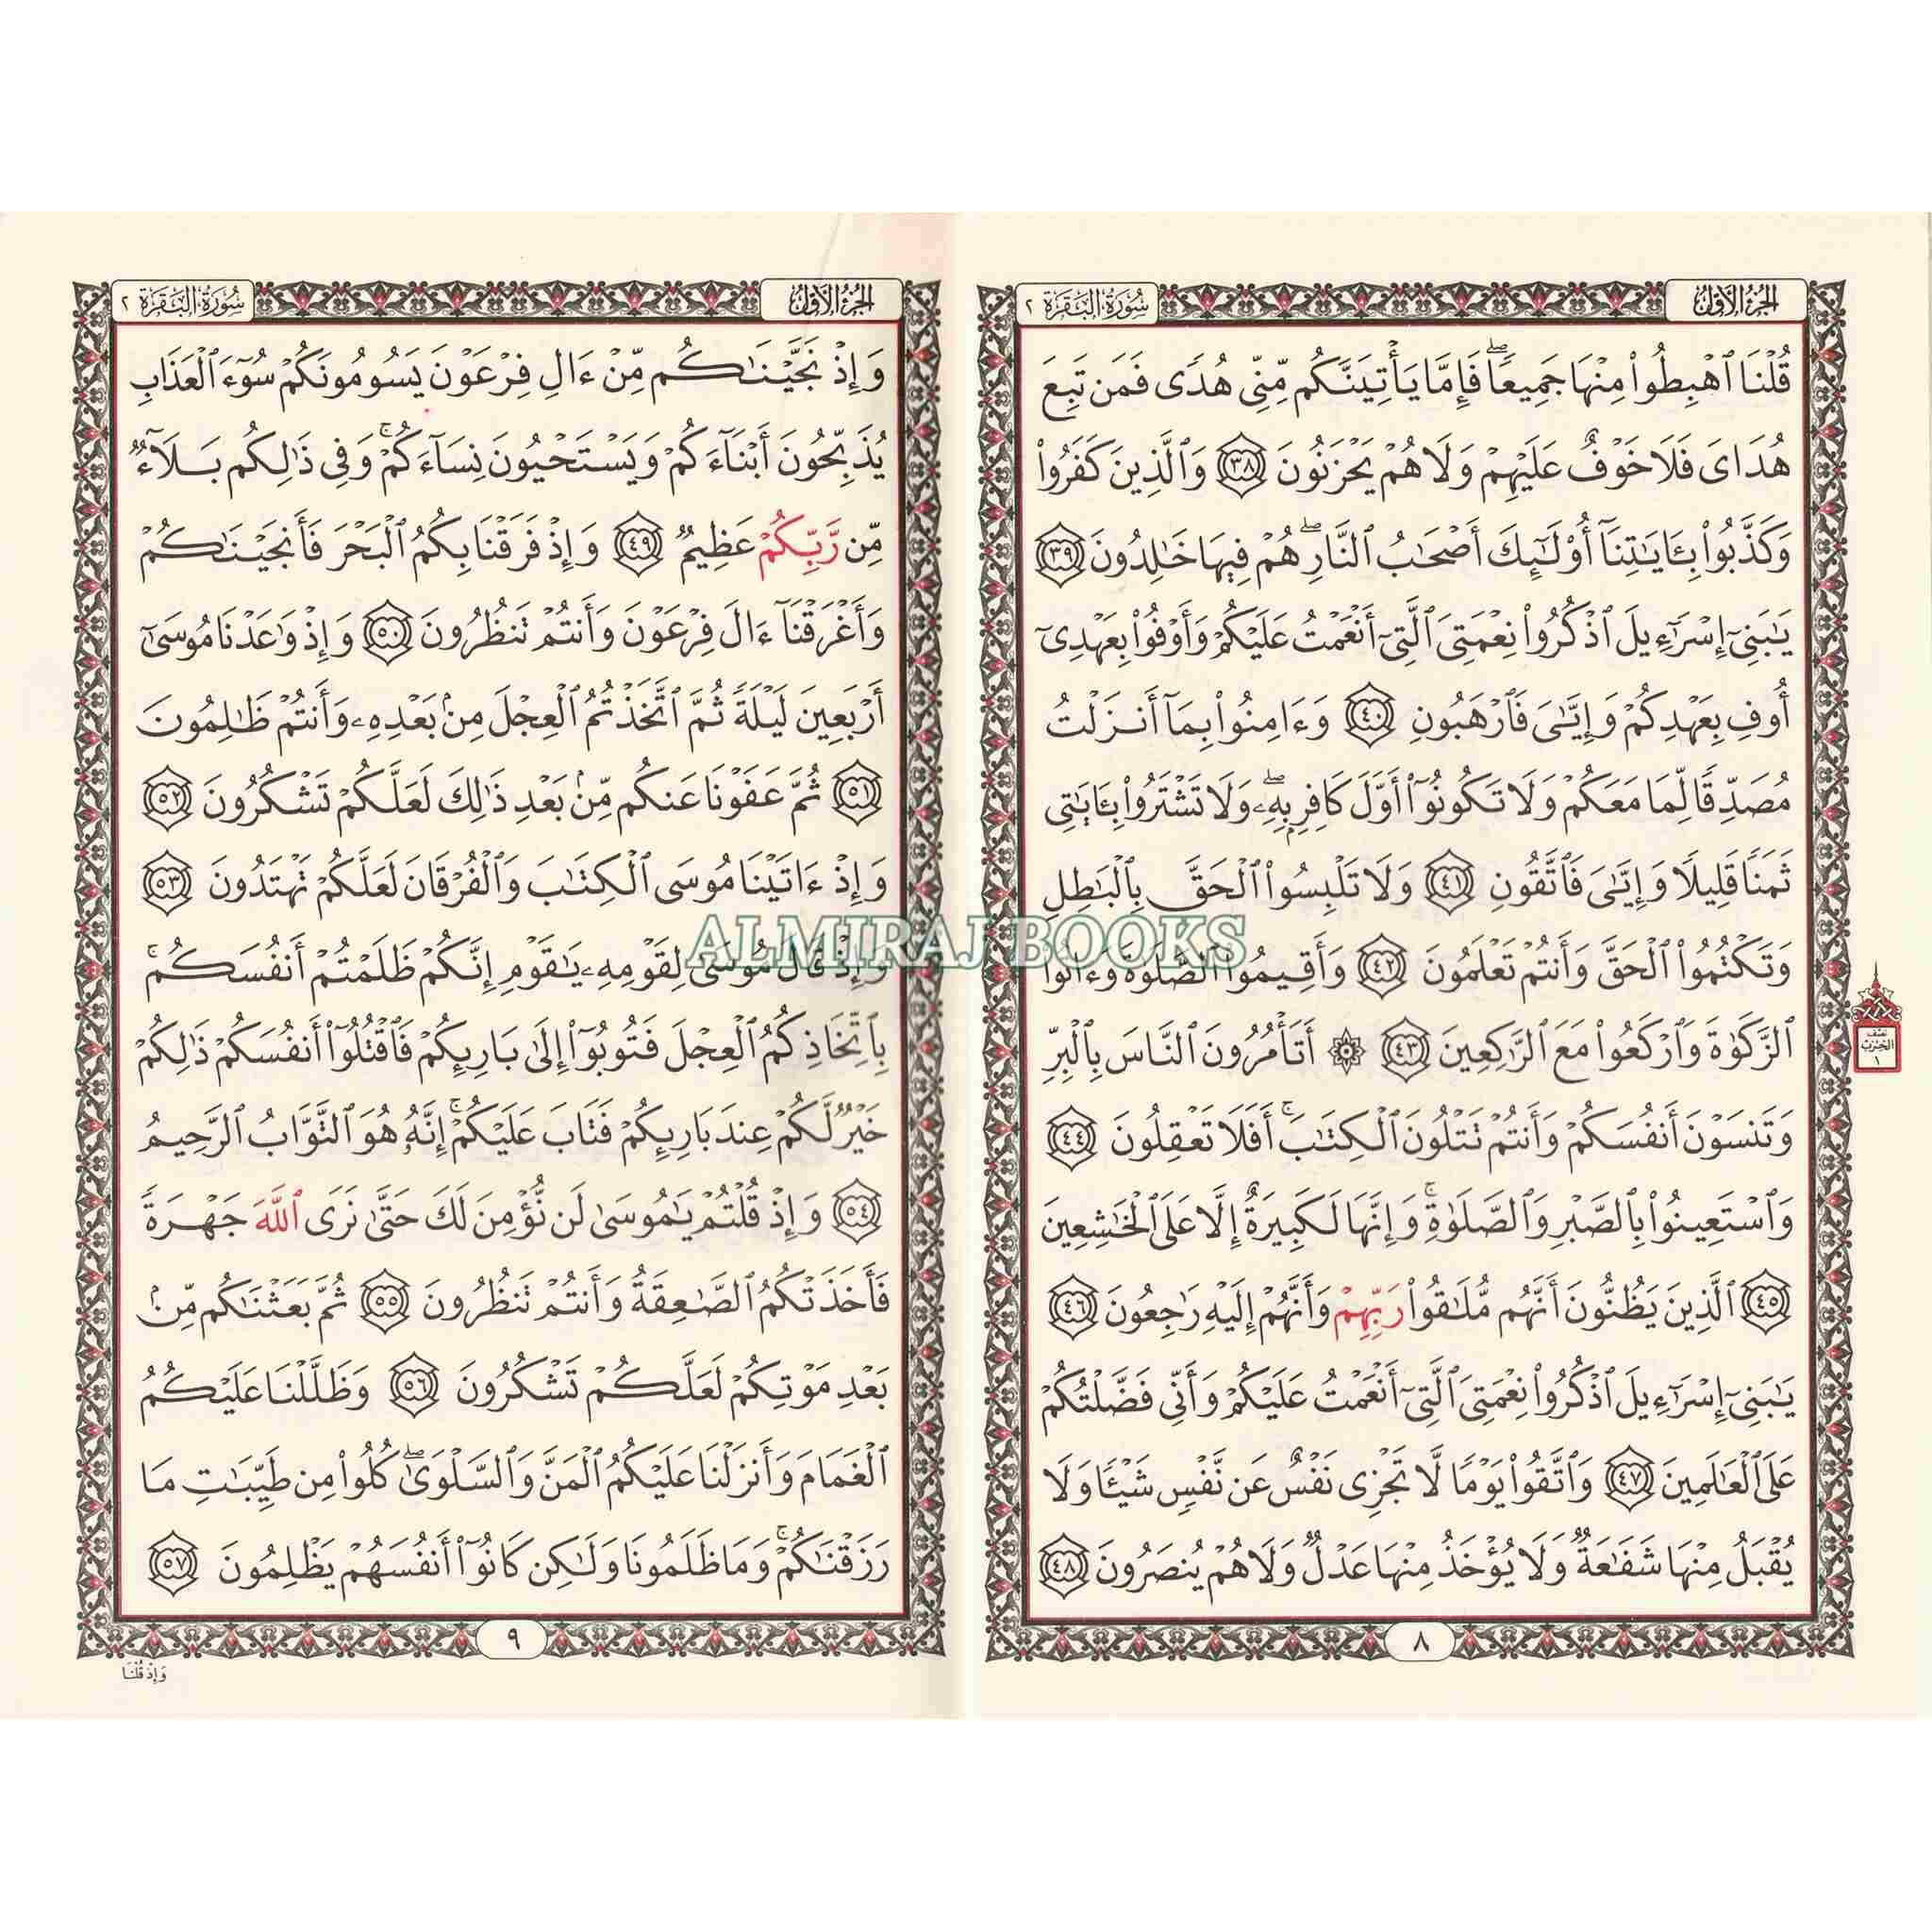 الجزء الأول
سورة البقرة ٢
قُلْنَا ٱهْبِطُوا۟ مِنْهَا جَمِيعًاۖ فَإِمَّا يَأْتِيَنَّكُم مِّنِّى هُدًى فَمَن تَبِعَ
هُدَاىَ فَلَا خَوْفٌ عَلَيْهِمْ وَلَا هُمْ يَحْزَنُونَ ٣٨ وَٱلَّذِينَ كَفَرُوا۟
وَكَذَّبُوا۟ بِـَٔايَـٰتِنَآ أُو۟لَـٰٓئِكَ أَصْحَـٰبُ ٱلنَّارِۖ هُمْ فِيهَا خَـٰلِدُونَ ٣٩
يَـٰبَنِىٓ إِسْرَٰٓءِيلَ ٱذْكُرُوا۟ نِعْمَتِىَ ٱلَّتِىٓ أَنْعَمْتُ عَلَيْكُمْ وَأَوْفُوا۟ بِعَهْدِىٓ
أُوفِ بِعَهْدِكُمْ وَإِيَّـٰىَ فَٱرْهَبُونِ ٤٠ وَءَامِنُوا۟ بِمَآ أَنزَلْتُ
مُصَدِّقًا لِّمَا مَعَكُمْ وَلَا تَكُونُوٓا۟ أَوَّلَ كَافِرٍۭ بِهِۦۖ وَلَا تَشْتَرُوا۟ بِـَٔايَـٰتِى
ثَمَنًا قَلِيلًا وَإِيَّـٰىَ فَٱتَّقُونِ ٤١ وَلَا تَلْبِسُوا۟ ٱلْحَقَّ بِٱلْبَـٰطِلِ
وَتَكْتُمُوا۟ ٱلْحَقَّ وَأَنتُمْ تَعْلَمُونَ ٤٢ وَأَقِيمُوا۟ ٱلصَّلَوٰةَ وَءَاتُوا۟
ٱلزَّكَوٰةَ وَٱرْكَعُوا۟ مَعَ ٱلرَّٰكِعِينَ ٤٣ ۞ أَتَأْمُرُونَ ٱلنَّاسَ بِٱلْبِرِّ
وَتَنسَوْنَ أَنفُسَكُمْ وَأَنتُمْ تَتْلُونَ ٱلْكِتَـٰبَۚ أَفَلَا تَعْقِلُونَ ٤٤
وَٱسْتَعِينُوا۟ بِٱلصَّبْرِ وَٱلصَّلَوٰةِۚ وَإِنَّهَا لَكَبِيرَةٌ إِلَّا عَلَى ٱلْخَـٰشِعِينَ
٤٥ ٱلَّذِينَ يَظُنُّونَ أَنَّهُم مُّلَـٰقُوا۟ رَبِّهِمْ وَأَنَّهُمْ إِلَيْهِ رَٰجِعُونَ ٤٦
يَـٰبَنِىٓ إِسْرَٰٓءِيلَ ٱذْكُرُوا۟ نِعْمَتِىَ ٱلَّتِىٓ أَنْعَمْتُ عَلَيْكُمْ وَأَنِّى فَضَّلْتُكُمْ
عَلَى ٱلْعَـٰلَمِينَ ٤٧ وَٱتَّقُوا۟ يَوْمًا لَّا تَجْزِى نَفْسٌ عَن نَّفْسٍ شَيْـًٔا وَلَا
يُقْبَلُ مِنْهَا شَفَـٰعَةٌ وَلَا يُؤْخَذُ مِنْهَا عَدْلٌ وَلَا هُمْ يُنصَرُونَ ٤٨
٨
نصف
الحزب
١
الجزء الأول
سورة البقرة ٢
وَإِذْ نَجَّيْنَـٰكُم مِّنْ ءَالِ فِرْعَوْنَ يَسُومُونَكُمْ سُوٓءَ ٱلْعَذَابِ
يُذَبِّحُونَ أَبْنَآءَكُمْ وَيَسْتَحْيُونَ نِسَآءَكُمْۚ وَفِى ذَٰلِكُم بَلَآءٌ
مِّن رَّبِّكُمْ عَظِيمٌ ٤٩ وَإِذْ فَرَقْنَا بِكُمُ ٱلْبَحْرَ فَأَنجَيْنَـٰكُمْ
وَأَغْرَقْنَآ ءَالَ فِرْعَوْنَ وَأَنتُمْ تَنظُرُونَ ٥٠ وَإِذْ وَٰعَدْنَا مُوسَىٰٓ
أَرْبَعِينَ لَيْلَةً ثُمَّ ٱتَّخَذْتُمُ ٱلْعِجْلَ مِنۢ بَعْدِهِۦ وَأَنتُمْ ظَـٰلِمُونَ
٥١ ثُمَّ عَفَوْنَا عَنكُم مِّنۢ بَعْدِ ذَٰلِكَ لَعَلَّكُمْ تَشْكُرُونَ ٥٢
وَإِذْ ءَاتَيْنَا مُوسَى ٱلْكِتَـٰبَ وَٱلْفُرْقَانَ لَعَلَّكُمْ تَهْتَدُونَ ٥٣
وَإِذْ قَالَ مُوسَىٰ لِقَوْمِهِۦ يَـٰقَوْمِ إِنَّكُمْ ظَلَمْتُمْ أَنفُسَكُم
بِٱتِّخَاذِكُمُ ٱلْعِجْلَ فَتُوبُوٓا۟ إِلَىٰ بَارِئِكُمْ فَٱقْتُلُوٓا۟ أَنفُسَكُمْ ذَٰلِكُمْ
خَيْرٌ لَّكُمْ عِندَ بَارِئِكُمْ فَتَابَ عَلَيْكُمْۚ إِنَّهُۥ هُوَ ٱلتَّوَّابُ ٱلرَّحِيمُ
٥٤ وَإِذْ قُلْتُمْ يَـٰمُوسَىٰ لَن نُّؤْمِنَ لَكَ حَتَّىٰ نَرَى ٱللَّهَ جَهْرَةً
فَأَخَذَتْكُمُ ٱلصَّـٰعِقَةُ وَأَنتُمْ تَنظُرُونَ ٥٥ ثُمَّ بَعَثْنَـٰكُم مِّنۢ
بَعْدِ مَوْتِكُمْ لَعَلَّكُمْ تَشْكُرُونَ ٥٦ وَظَلَّلْنَا عَلَيْكُمُ
ٱلْغَمَامَ وَأَنزَلْنَا عَلَيْكُمُ ٱلْمَنَّ وَٱلسَّلْوَىٰۖ كُلُوا۟ مِن طَيِّبَـٰتِ مَا
رَزَقْنَـٰكُمْۚ وَمَا ظَلَمُونَا وَلَـٰكِن كَانُوٓا۟ أَنفُسَهُمْ يَظْلِمُونَ ٥٧
٩
وَإِذْ قُلْنَا
ALMIRAJ BOOKS